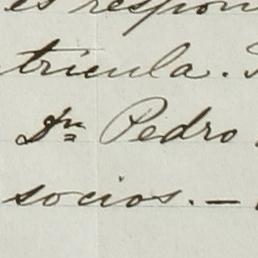 es respon
trícula.
Dn Pedro
socios. —